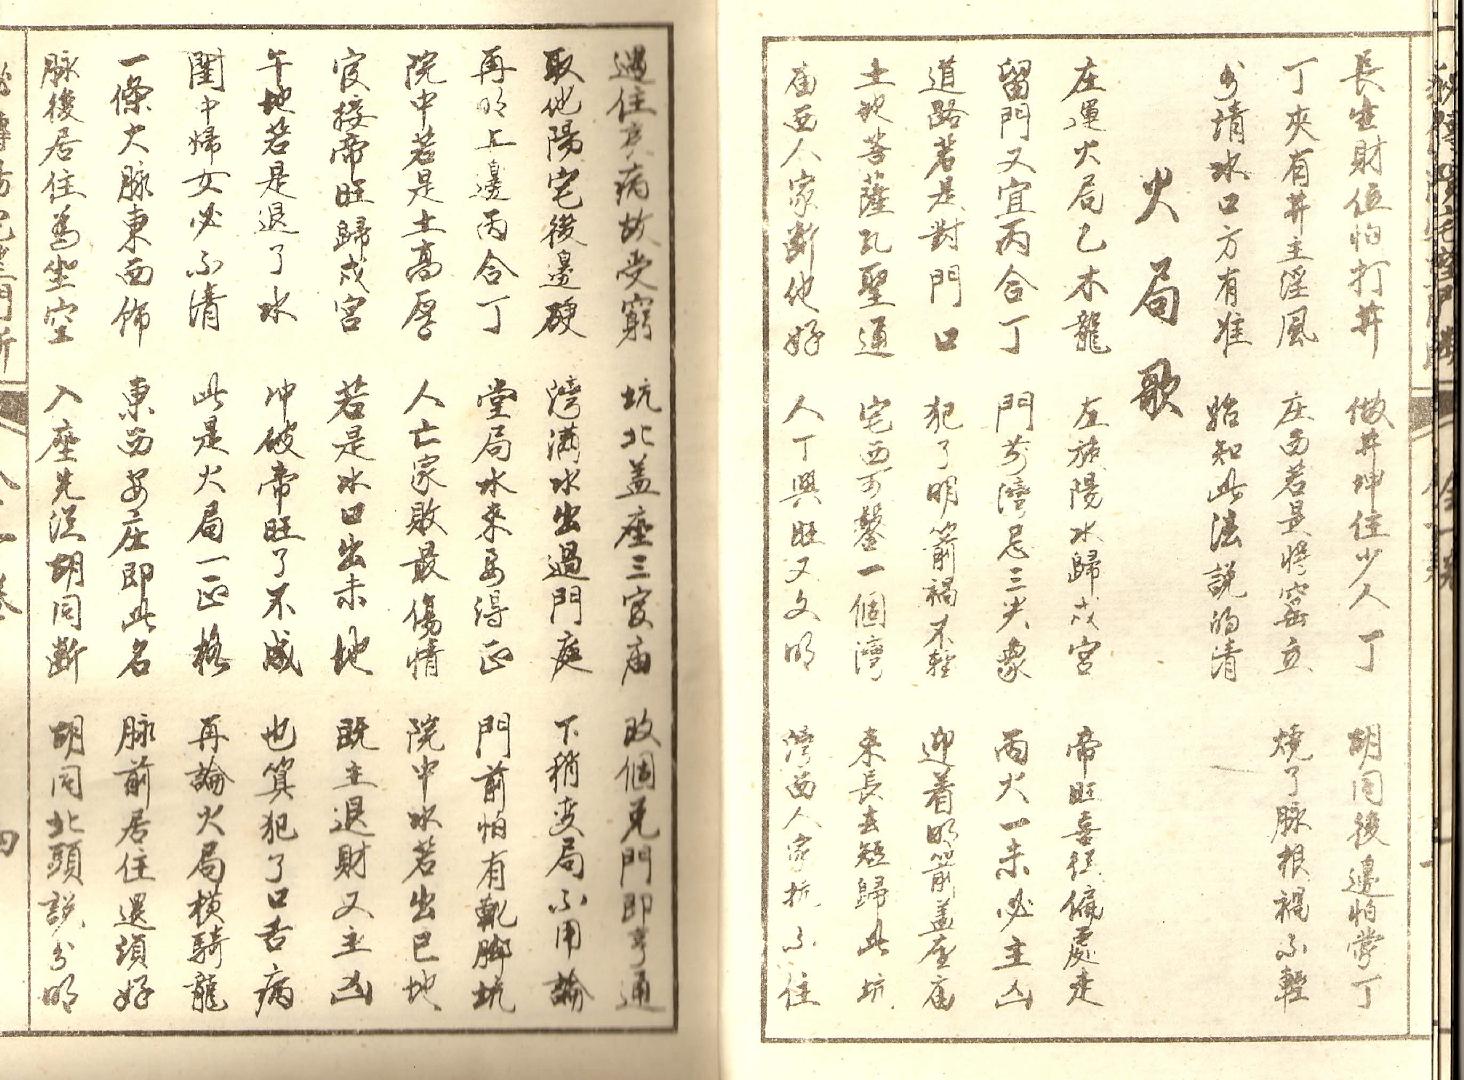 長生財位怕打井 做井坤住少人丁 胡同後邊怕掌丁
丁夾有井主淫風 庄西若是將窑立 燒了脉根禍不輕
分清水口方有准 始知此法説的清
火局歌
庄運火局乙木龍 左旋陽水歸戌宮 帝旺喜經偏處走
留門又宜丙合丁 門前灣忌三尖象 丙火一未必主凶
道路若是對門口 犯了明箭禍不輕 迎着明箭盖座庙
土地菩薩孔聖通 宅西可鑿一個灣 来長去短歸此坑
庙西人家断他好 人丁興旺又文明 灣西人家抗不住
遇住 病故受窮 坑北盖座三官庙 改個兑門即亨通
取他陽宅後邊硬 灣满水出過門庭 下稍变局不用論
再明上邊丙合丁 堂局水来要得正 門前怕有軋脚坑
院中若是土高厚 人亡家敗最傷情 院中水若出巳地
官接帝旺歸戌宮 若是水口出未地 既主退財又主凶
午地若是退了水 冲破帝旺了不成 也算犯了口舌病
閨中婦女必不清 此是火局一正格 再論火局横騎龍
一條大脉東西佈 東西安庄即此名 脉前居住還須好
脉後居住為坐空 入座先從胡同断 胡同北頭説分明
四